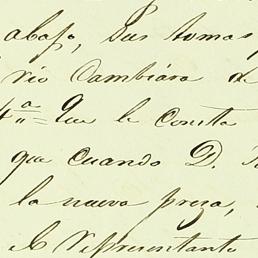 abajo, sus tomas
rio Cambiára de
4ª Que le Consta
que Cuando D.
la nueva presa,
el Representante